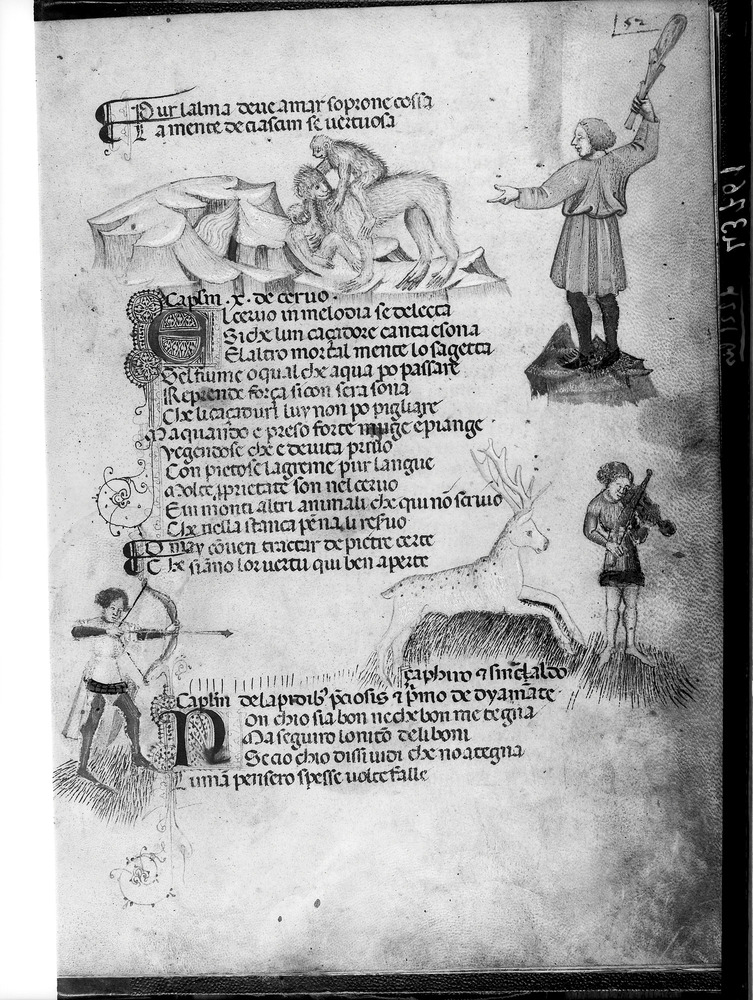 52
Pur lalma deue amar soprone cossa
La mente de ciascun se uertuosa
Caplm .x. de ceruo.
El ceruo in melodia se delecta
Si che lun caçadore canta e sona
El altro mortal mente lo sagetta
Del fiume o qual che aqua po passare
Reprende força sicon sera sona
Che li caçaduri luy non po pigliare
Ma quando e preso forte muge e piange
Vegendose che e de uita priuo
Con pietose lagreme pur langue
Molte pprietate son nel ceruo
E in monti altri animali che qui nõ scriuo
Che nella stanca pẽna li resuo
O may cõuen tractar de pietre certe
Che siãno lor uertu qui ben aperte
saphiro & smeraldo
Caplm de lapidib' p̃ciosis & p̃mo de dyamãte
Non chio sia bon ne che bon me tegna
Ma seguito lonico deli boni
Se cio chio dissi uidi che no ategna
Lumã pensero spesse uolte falle